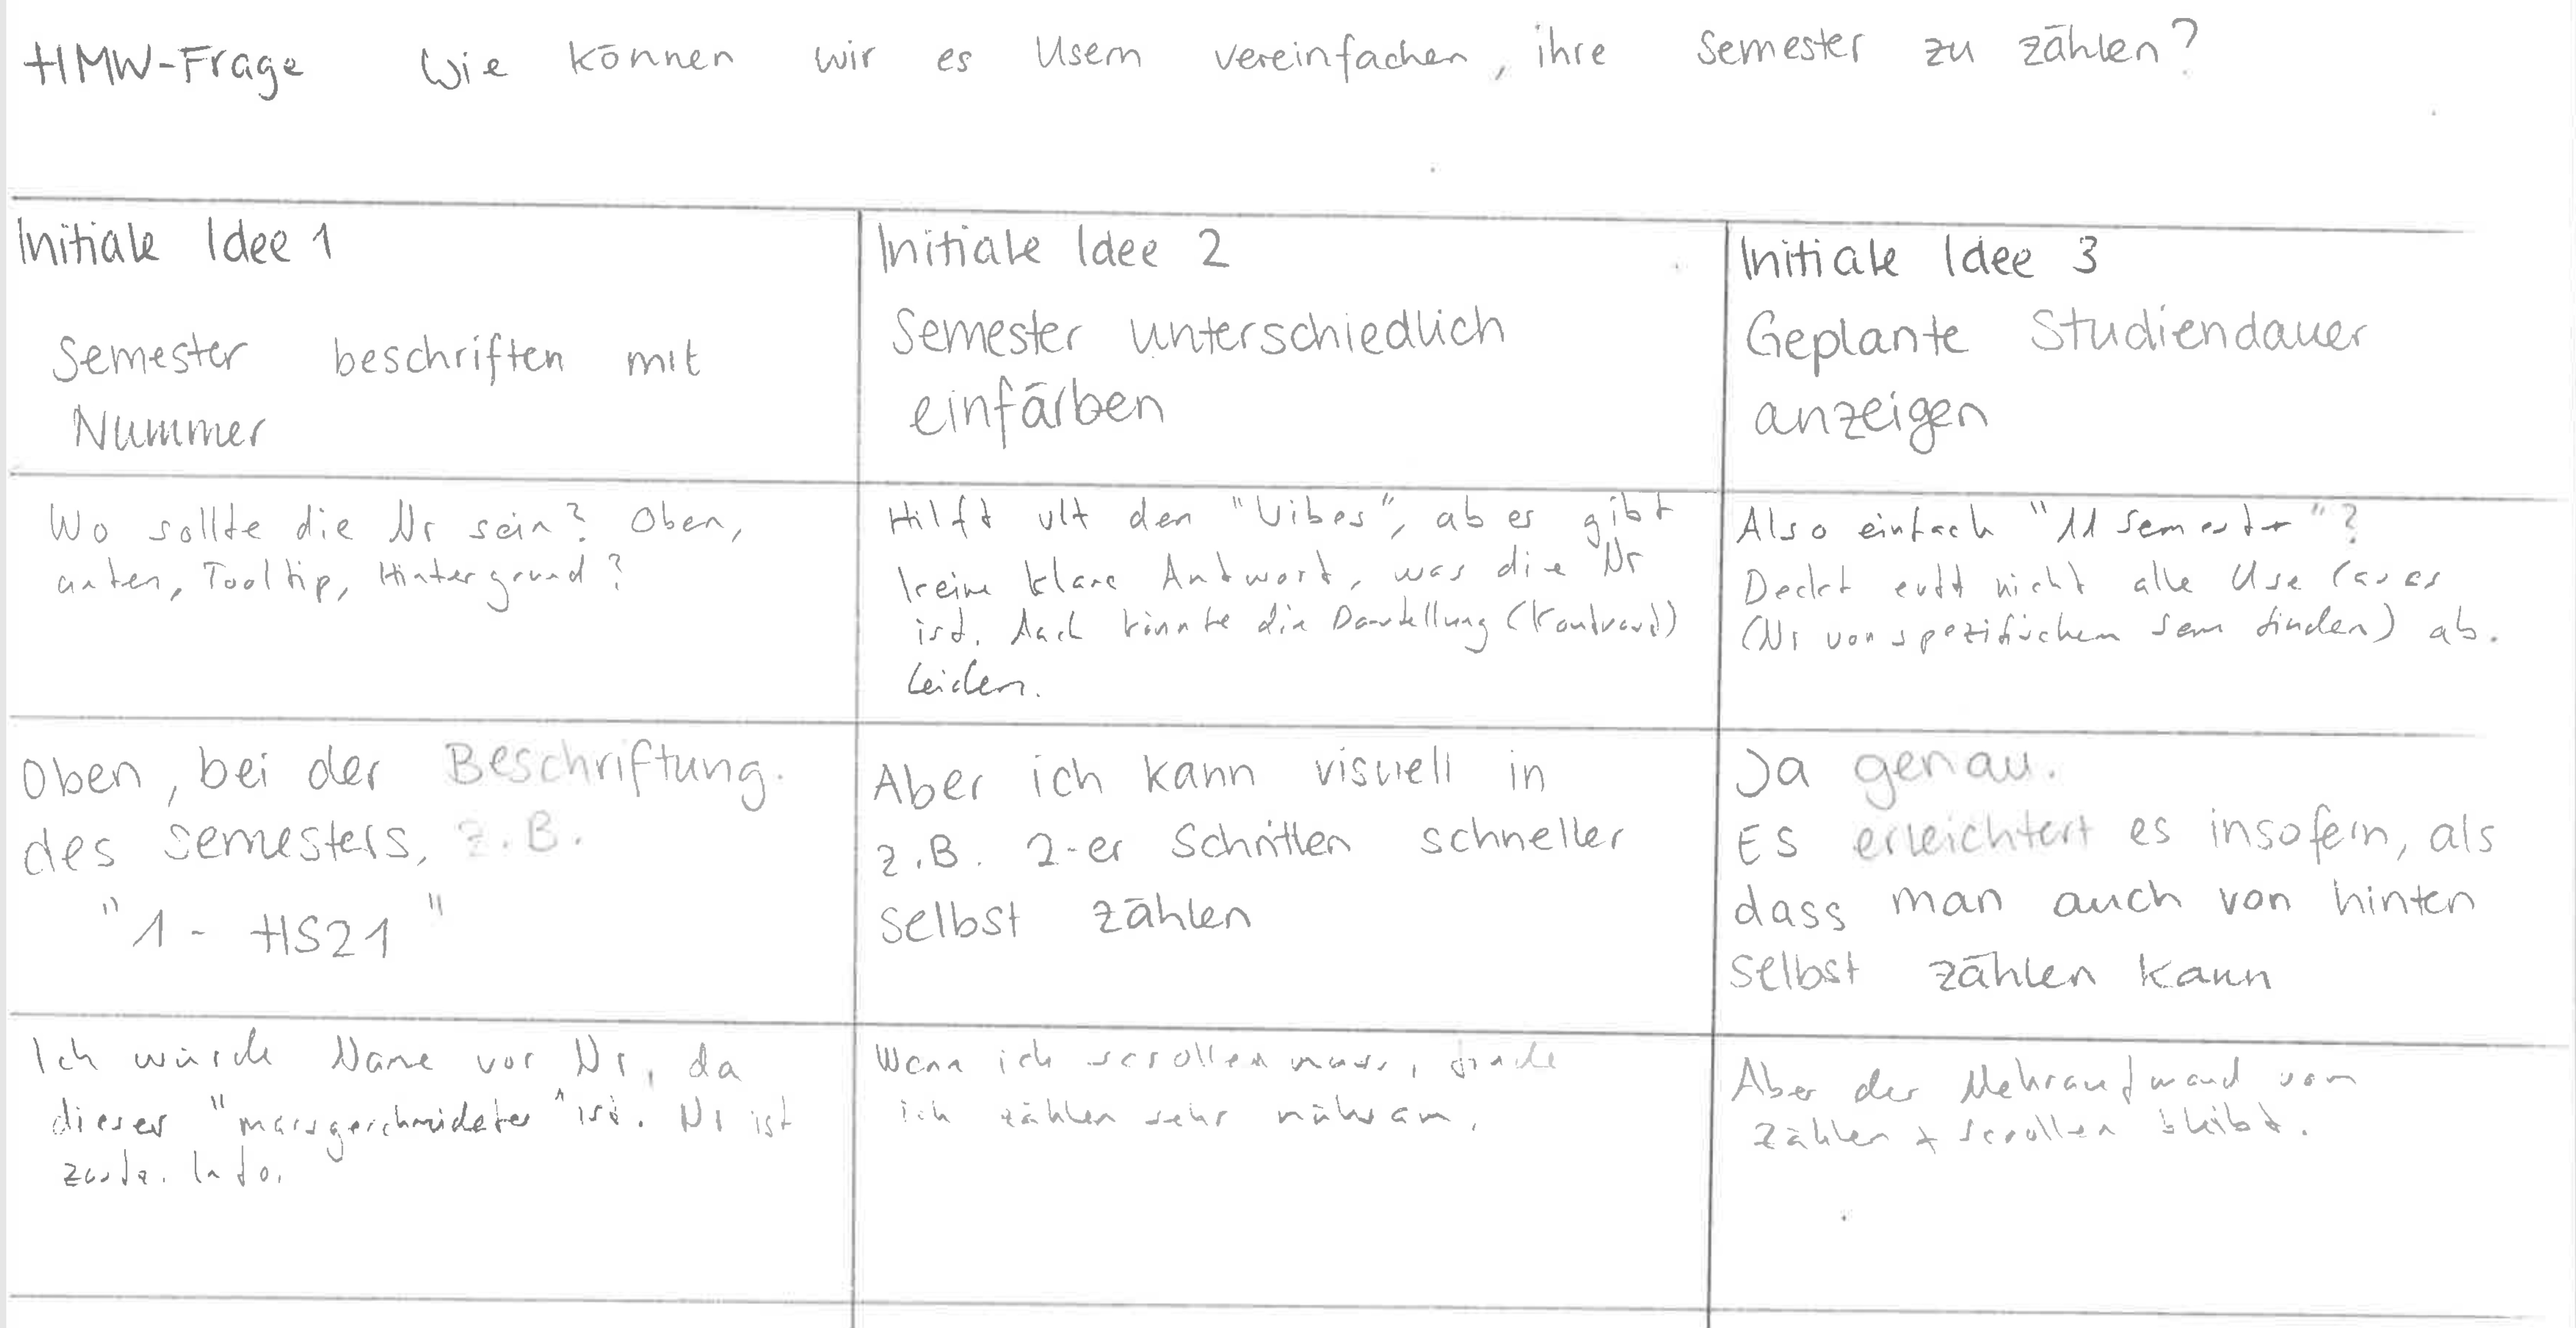 HMW-Frage Wie können wir es Usern vereinfachen, ihre Semester zu zählen?
Initiale Idee 1
Semester beschriften mit
Nummer
Initiale Idee 2
Semester unterschiedlich
einfärben
Initiale Idee 3
Geplante Studiendauer
anzeigen
Wo sollte die Nr sein? Oben,
unten, Tooltip, Hintergrund?
Hilft vlt den "Vibes", ab es gibt
keine klare Antwort, was die Nr
ist. Auch könnte die Darstellung (Kontrast)
leiden.
Also einfach "11 Semester"?
Deckt evtl nicht alle Use Cases
(Nr von spezifischem Sem finden) ab.
Oben, bei der Beschriftung.
des Semesters, z.B.
"1 - HS21"
Aber ich kann visuell in
z.B. 2-er Schritten schneller
selbst zählen
Ja genau.
Es erleichtert es insofern, als
dass man auch von hinten
selbst zählen kann
Ich würde Name vor Nr, da
dieser "massgeschneideter" ist. Nr ist
zusätz. Info.
Wenn ich scrollen muss, finde
ich zählen sehr mühsam.
Aber der Mehraufwand vom
Zählen + Scrollen bleibt.